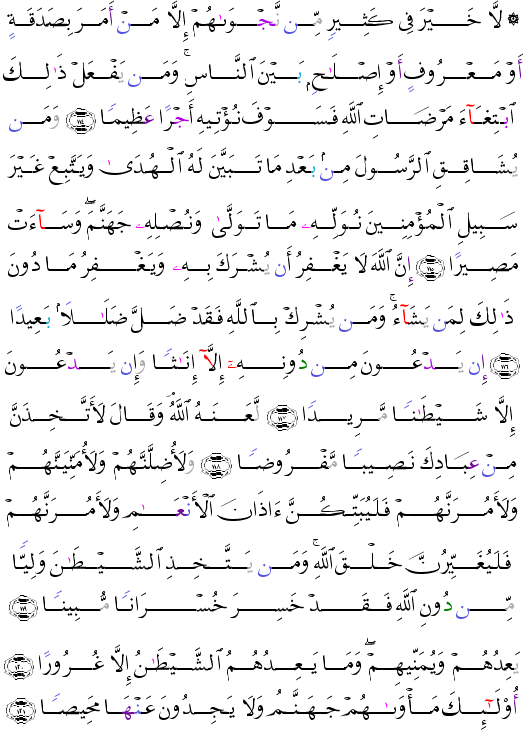 ۞ لَّا خَيْرَ فِى كَثِيرٍ مِّن نَّجْوَىٰهُمْ إِلَّا مَنْ أَمَرَ بِصَدَقَةٍ
أَوْ مَعْرُوفٍ أَوْ إِصْلَٰحٍۭ بَيْنَ ٱلنَّاسِ ۚ وَمَن يَفْعَلْ ذَٰلِكَ
ٱبْتِغَآءَ مَرْضَاتِ ٱللَّهِ فَسَوْفَ نُؤْتِيهِ أَجْرًا عَظِيمًا ﴿١١٤﴾ وَمَن
يُشَاقِقِ ٱلرَّسُولَ مِنۢ بَعْدِ مَا تَبَيَّنَ لَهُ ٱلْهُدَىٰ وَيَتَّبِعْ غَيْرَ
سَبِيلِ ٱلْمُؤْمِنِينَ نُوَلِّهِۦ مَا تَوَلَّىٰ وَنُصْلِهِۦ جَهَنَّمَ ۖ وَسَآءَتْ
مَصِيرًا ﴿١١٥﴾ إِنَّ ٱللَّهَ لَا يَغْفِرُ أَن يُشْرَكَ بِهِۦ وَيَغْفِرُ مَا دُونَ
ذَٰلِكَ لِمَن يَشَآءُ ۚ وَمَن يُشْرِكْ بِٱللَّهِ فَقَدْ ضَلَّ ضَلَٰلًۢا بَعِيدًا
﴿١١٦﴾ إِن يَدْعُونَ مِن دُونِهِۦٓ إِلَّآ إِنَٰثًا وَإِن يَدْعُونَ
إِلَّا شَيْطَٰنًا مَّرِيدًا ﴿١١٧﴾ لَّعَنَهُ ٱللَّهُ ۘ وَقَالَ لَأَتَّخِذَنَّ
مِنْ عِبَادِكَ نَصِيبًا مَّفْرُوضًا ﴿١١٨﴾ وَلَأُضِلَّنَّهُمْ وَلَأُمَنِّيَنَّهُمْ
وَلَءَامُرَنَّهُمْ فَلَيُبَتِّكُنَّ ءَاذَانَ ٱلْأَنْعَٰمِ وَلَءَامُرَنَّهُمْ
فَلَيُغَيِّرُنَّ خَلْقَ ٱللَّهِ ۚ وَمَن يَتَّخِذِ ٱلشَّيْطَٰنَ وَلِيًّا
مِّن دُونِ ٱللَّهِ فَقَدْ خَسِرَ خُسْرَانًا مُّبِينًا ﴿١١٩﴾
يَعِدُهُمْ وَيُمَنِّيهِمْ ۖ وَمَا يَعِدُهُمُ ٱلشَّيْطَٰنُ إِلَّا غُرُورًا ﴿١٢٠﴾
أُو۟لَٰٓئِكَ مَأْوَىٰهُمْ جَهَنَّمُ وَلَا يَجِدُونَ عَنْهَا مَحِيصًا ﴿١٢١﴾